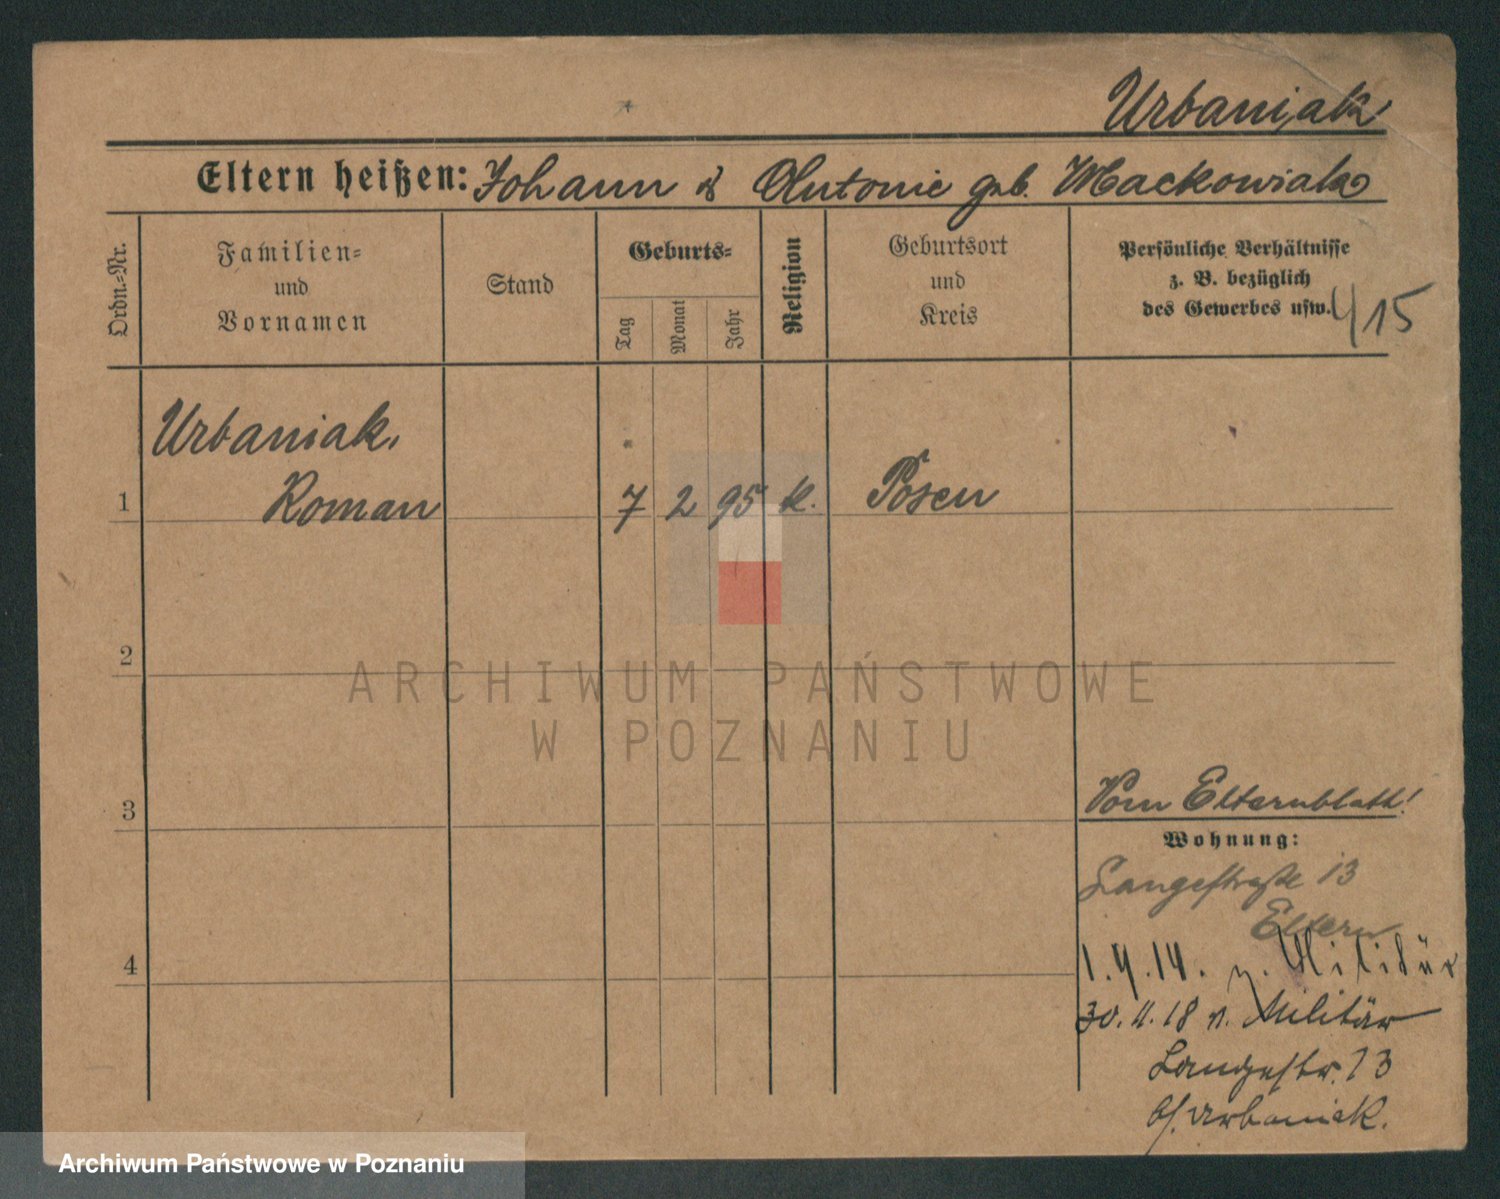 Urbaniak
Eltern heißen: Johann & Antonie geb. Maćkowiak
Ordn.-Nr.
Familien-
und
Vornamen
Stand
Geburts-
Tag
Monat
Jahr
Religion
Geburtsort
und
Kreis
Persönliche Verhältnisse
z. B. bezüglich
des Gewerbes usw.
415
Urbaniak,
1 Roman 7 2 95 k. Posen
2
3
Vom Elternblatt!
Wohnung:
Langestraße 13
Eltern
4
1.9.14. z. Militär
30.11.18 v. Militär
Langestr. 13
b/. Urbaniak.
ARCHIWUM PAŃSTWOWE
W POZNANIU
Archiwum Państwowe w Poznaniu